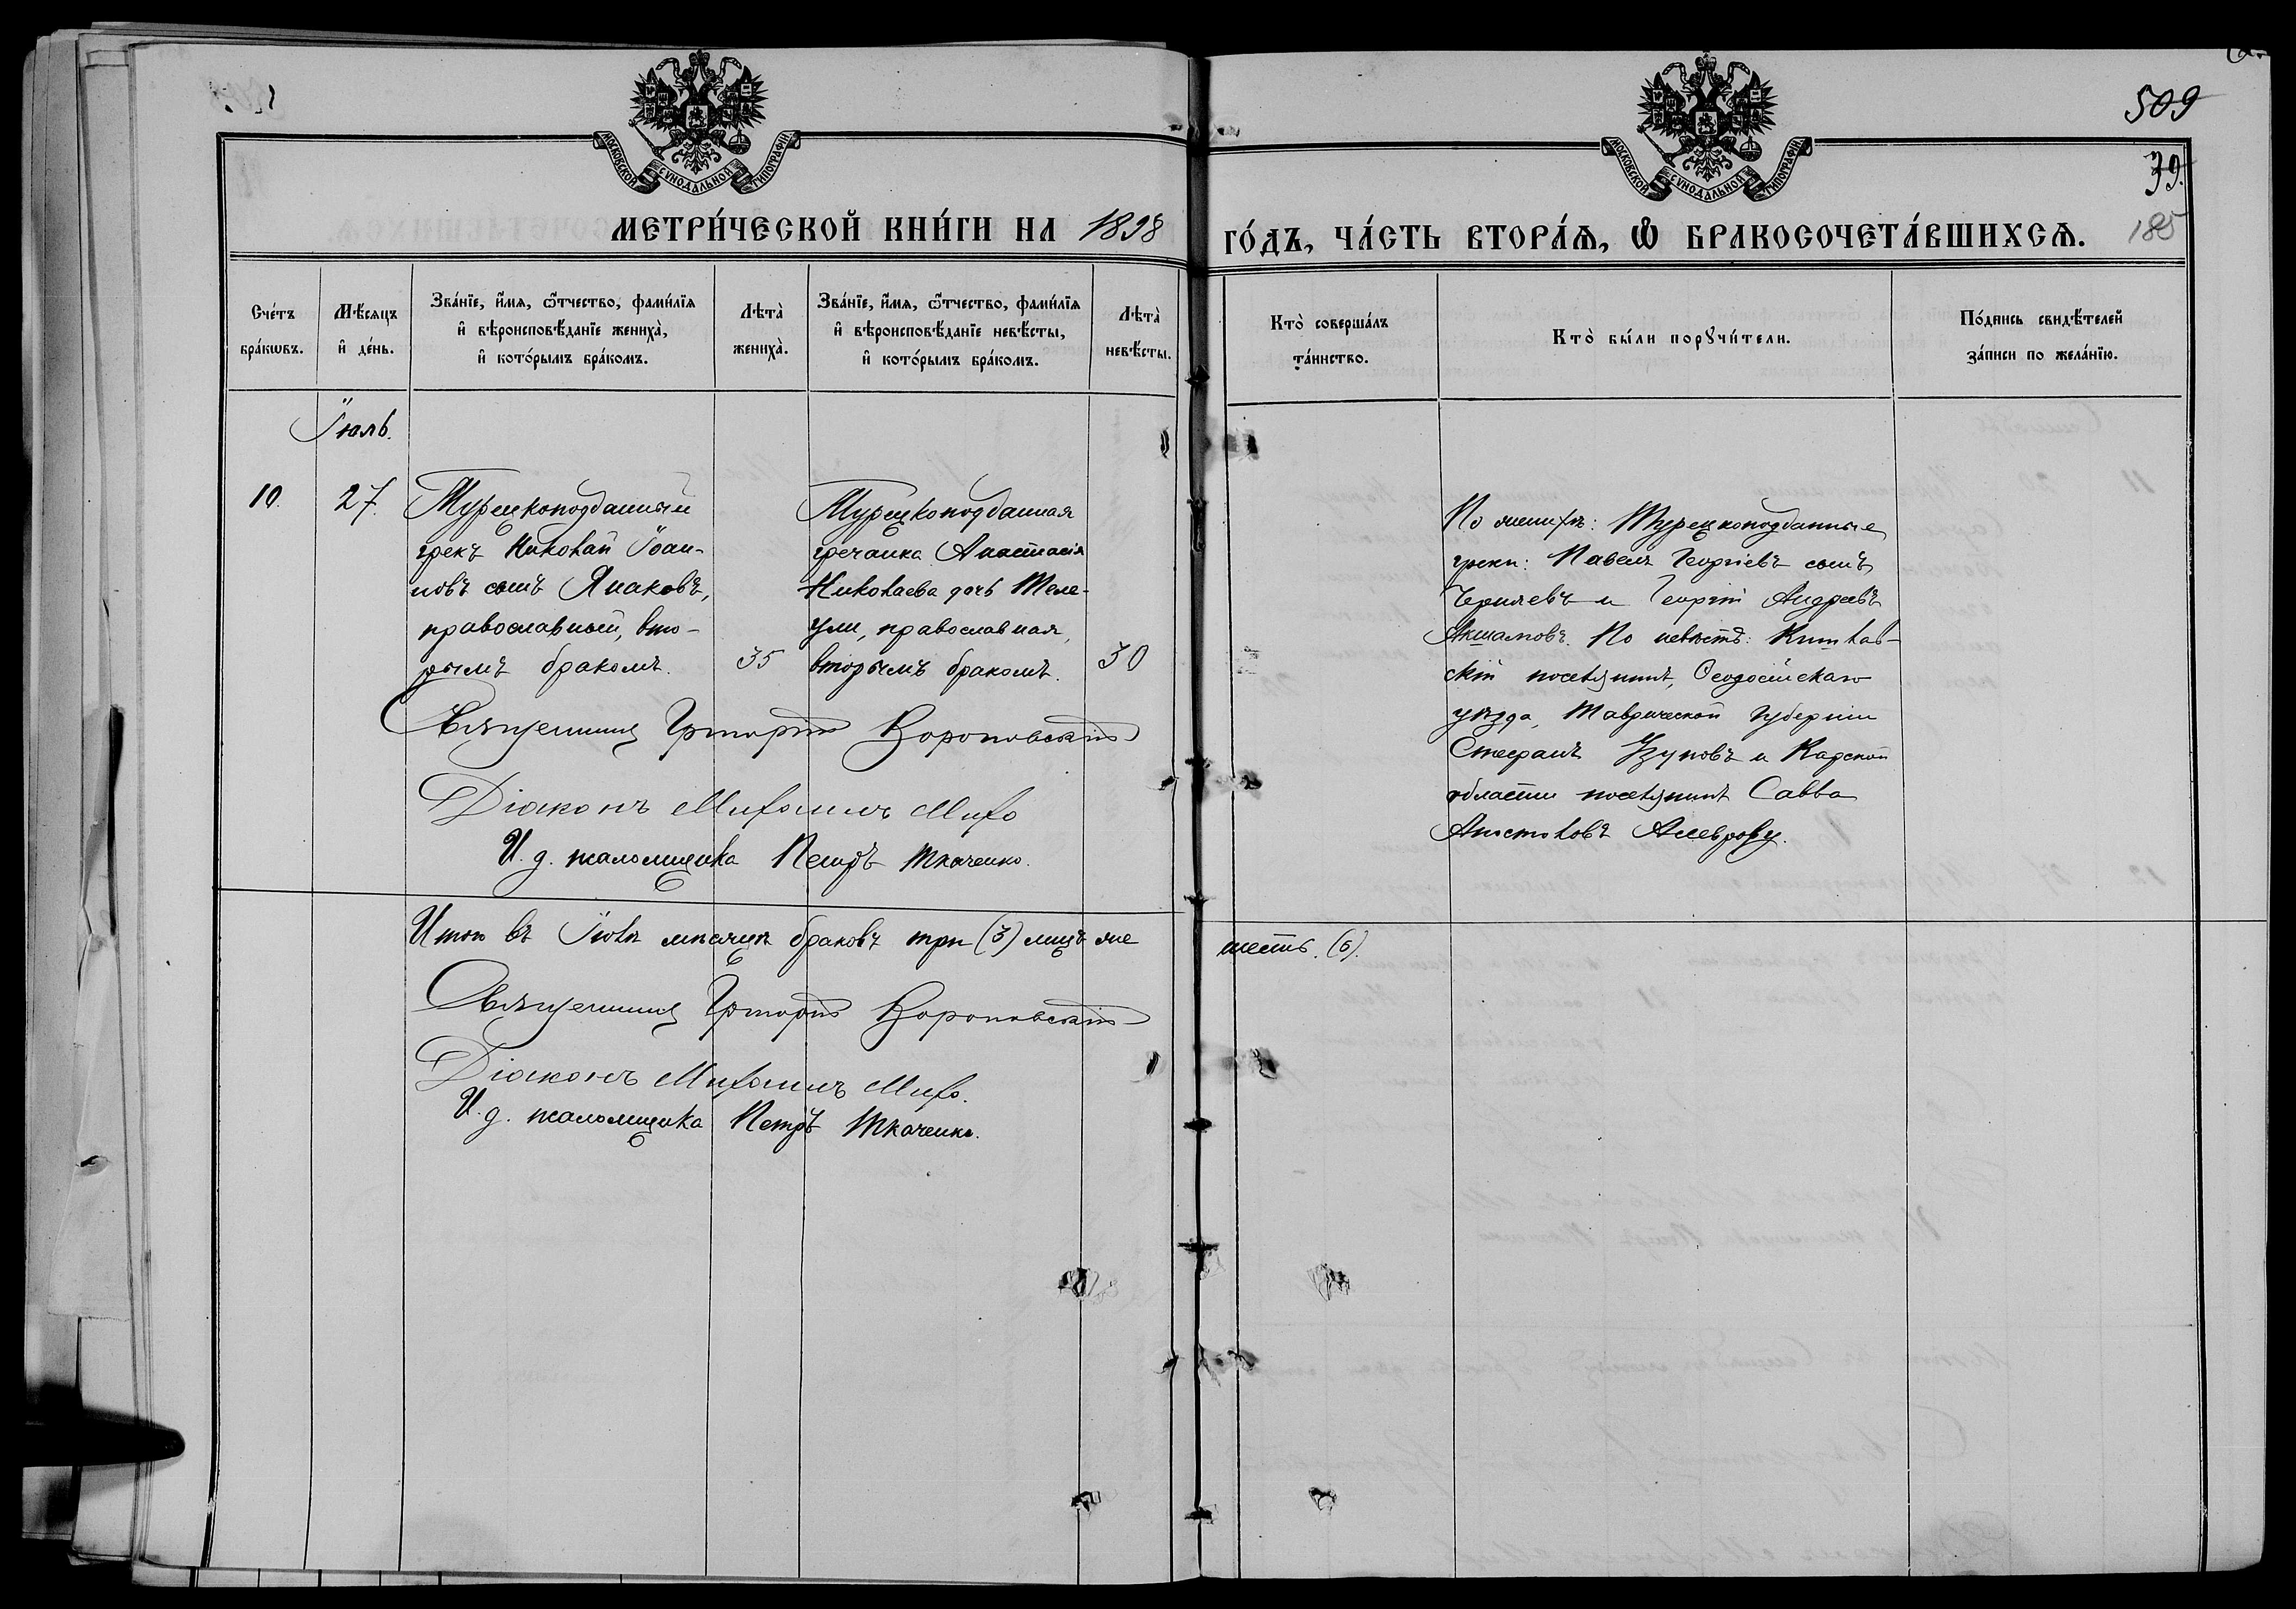 509
39.
185
МОСКОВСКОЙ СѴНОДАЛЬНОЙ ТИПОГРАФІИ
МОСКОВСКОЙ СѴНОДАЛЬНОЙ ТИПОГРАФІИ
МЕТРИ́ЧЕСКОЙ КНИ́ГИ НА 1898 ГО́ДЪ, ЧА́СТЬ ВТОРА́Ѧ, Ѡ БРАКОСОЧЕТА́ВШИХСѦ.
Сче́тъ бра́кѡвъ.
Мѣ́сяцъ и҆ де́нь.
Зва́нїе, и҆́мя, ѻ҆́тчество, фами́лїя и҆ вѣроисповѣ́данїе жениха̀, и҆ кото́рымъ бра́комъ.
Лѣта̀ жениха̀.
Зва́нїе, и҆́мя, ѻ҆́тчество, фами́лїя и҆ вѣроисповѣ́данїе невѣ́сты, и҆ кото́рымъ бра́комъ.
Лѣта̀ невѣ́сты.
Кто̀ соверша́лъ та́инство.
Кто̀ бы́ли порꙋчи́тели.
По́дпись свидѣ́телей за́писи по жела́нїю.
Іюль.
10.
27.
Турецкоподданный
грекъ Николай Іоан-
новъ сынъ Янаковъ,
православный, вто-
рымъ бракомъ.
35
Турецкоподданная
гречанка Анастасія
Николаева дочь Теле-
ули, православная,
вторымъ бракомъ.
30
По женихѣ: Турецкоподданные
греки: Павелъ Георгіевъ сынъ
и Георгій Андреевъ
Акшамовъ. По невѣстѣ:
скій поселянинъ, Ѳеодосійскаго
уѣзда, Таврической Губерніи
Стефанъ Узуновъ и Карской
области поселянинъ Савва
Апостоловъ
Священникъ Григорій Вороновскій
Діаконъ Михаилъ Михо
И. д. псаломщика Петръ Ткаченко.
Итого въ Іюлѣ мѣсяцѣ браковъ три (3) лицъ же шесть. (6).
Священникъ Григорій Вороновскій
Діаконъ Михаилъ Михо.
И. д. псаломщика Петръ Ткаченко.